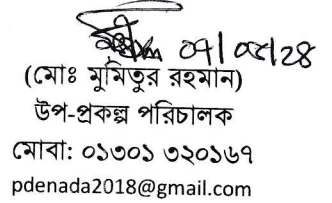 ০৭/০৫/২৪
(মোঃ মুমিতুর রহমান)
উপ-প্রকল্প পরিচালক
মোবা: ০১৩০১ ৩২০১৬৭
pdenada2018@gmail.com